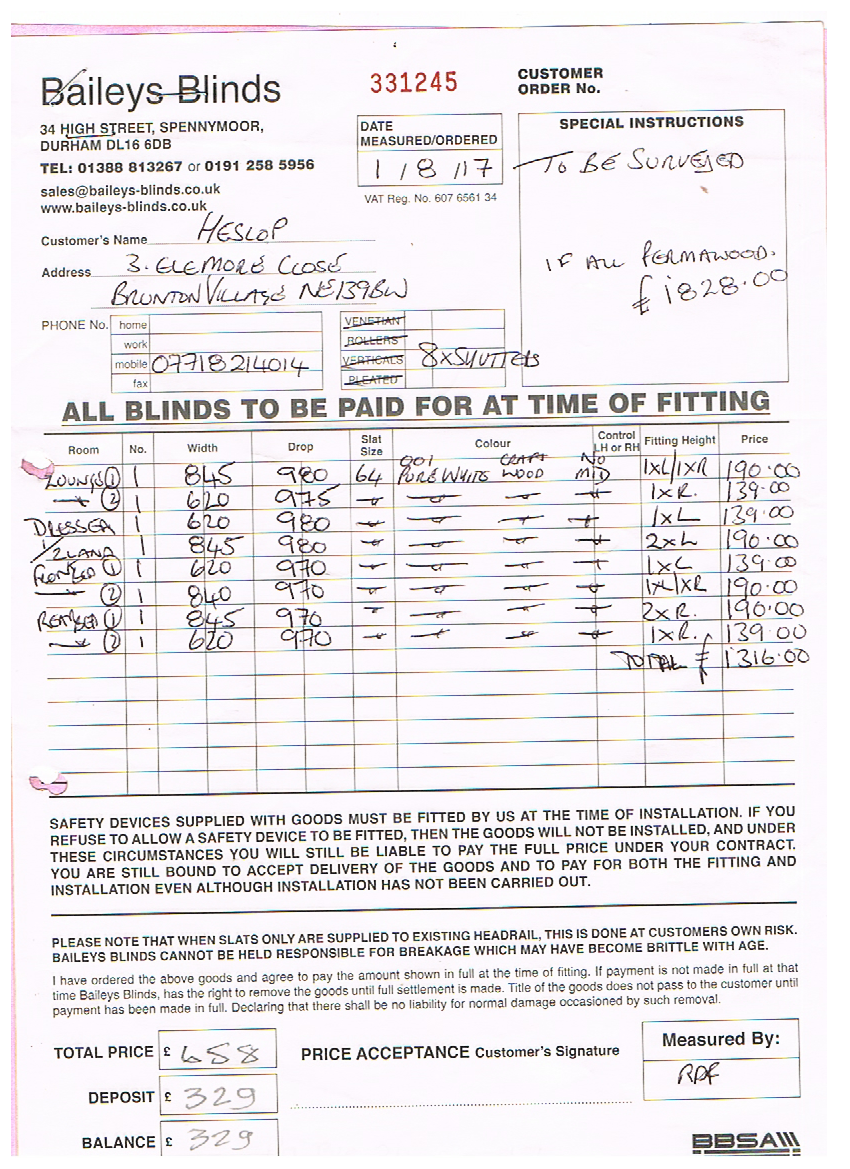 Baileys Blinds
34 HIGH STREET, SPENNYMOOR,
DURHAM DL16 6DB
TEL: 01388 813267 or 0191 258 5956
sales@baileys-blinds.co.uk
www.baileys-blinds.co.uk
331245
DATE
MEASURED/ORDERED
1 / 8 /17
VAT Reg. No. 607 6561 34
CUSTOMER
ORDER No.
SPECIAL INSTRUCTIONS
TO BE SURVEYED
IF ALL PERMAWOOD.
£1828.00
Customer's Name HESLOP
Address 3. ELEMORE CLOSE
BRUNTON VILLAGE NE139BW
PHONE No. home
work
mobile 07718214014
fax
VENETIAN
ROLLERS
VERTICALS 8xSHUTTERS
PLEATED
ALL BLINDS TO BE PAID FOR AT TIME OF FITTING
Room No. Width Drop Slat Size Colour Control LH or RH Fitting Height Price
LOUNGE ① 1 845 980 64 001 PURE WHITE CRAFT WOOD NO MID 1XL/1XR 190.00
② 1 620 975 1XR. 139.00
DRESSER 1 620 980 1XL 139.00
1/2 LAND 1 845 980 2XL 190.00
FRONTBED ① 1 620 970 1XL 139.00
② 1 840 970 1XL/1XR 190.00
REARBED ① 1 845 970 2XR. 190.00
② 1 620 970 1XR. 139.00
TOTAL £ 1316.00
SAFETY DEVICES SUPPLIED WITH GOODS MUST BE FITTED BY US AT THE TIME OF INSTALLATION. IF YOU
REFUSE TO ALLOW A SAFETY DEVICE TO BE FITTED, THEN THE GOODS WILL NOT BE INSTALLED, AND UNDER
THESE CIRCUMSTANCES YOU WILL STILL BE LIABLE TO PAY THE FULL PRICE UNDER YOUR CONTRACT.
YOU ARE STILL BOUND TO ACCEPT DELIVERY OF THE GOODS AND TO PAY FOR BOTH THE FITTING AND
INSTALLATION EVEN ALTHOUGH INSTALLATION HAS NOT BEEN CARRIED OUT.
PLEASE NOTE THAT WHEN SLATS ONLY ARE SUPPLIED TO EXISTING HEADRAIL, THIS IS DONE AT CUSTOMERS OWN RISK.
BAILEYS BLINDS CANNOT BE HELD RESPONSIBLE FOR BREAKAGE WHICH MAY HAVE BECOME BRITTLE WITH AGE.
I have ordered the above goods and agree to pay the amount shown in full at the time of fitting. If payment is not made in full at that
time Baileys Blinds, has the right to remove the goods until full settlement is made. Title of the goods does not pass to the customer until
payment has been made in full. Declaring that there shall be no liability for normal damage occasioned by such removal.
TOTAL PRICE £ 658
DEPOSIT £ 329
BALANCE £ 329
PRICE ACCEPTANCE Customer's Signature
Measured By:
RDF
BBSA